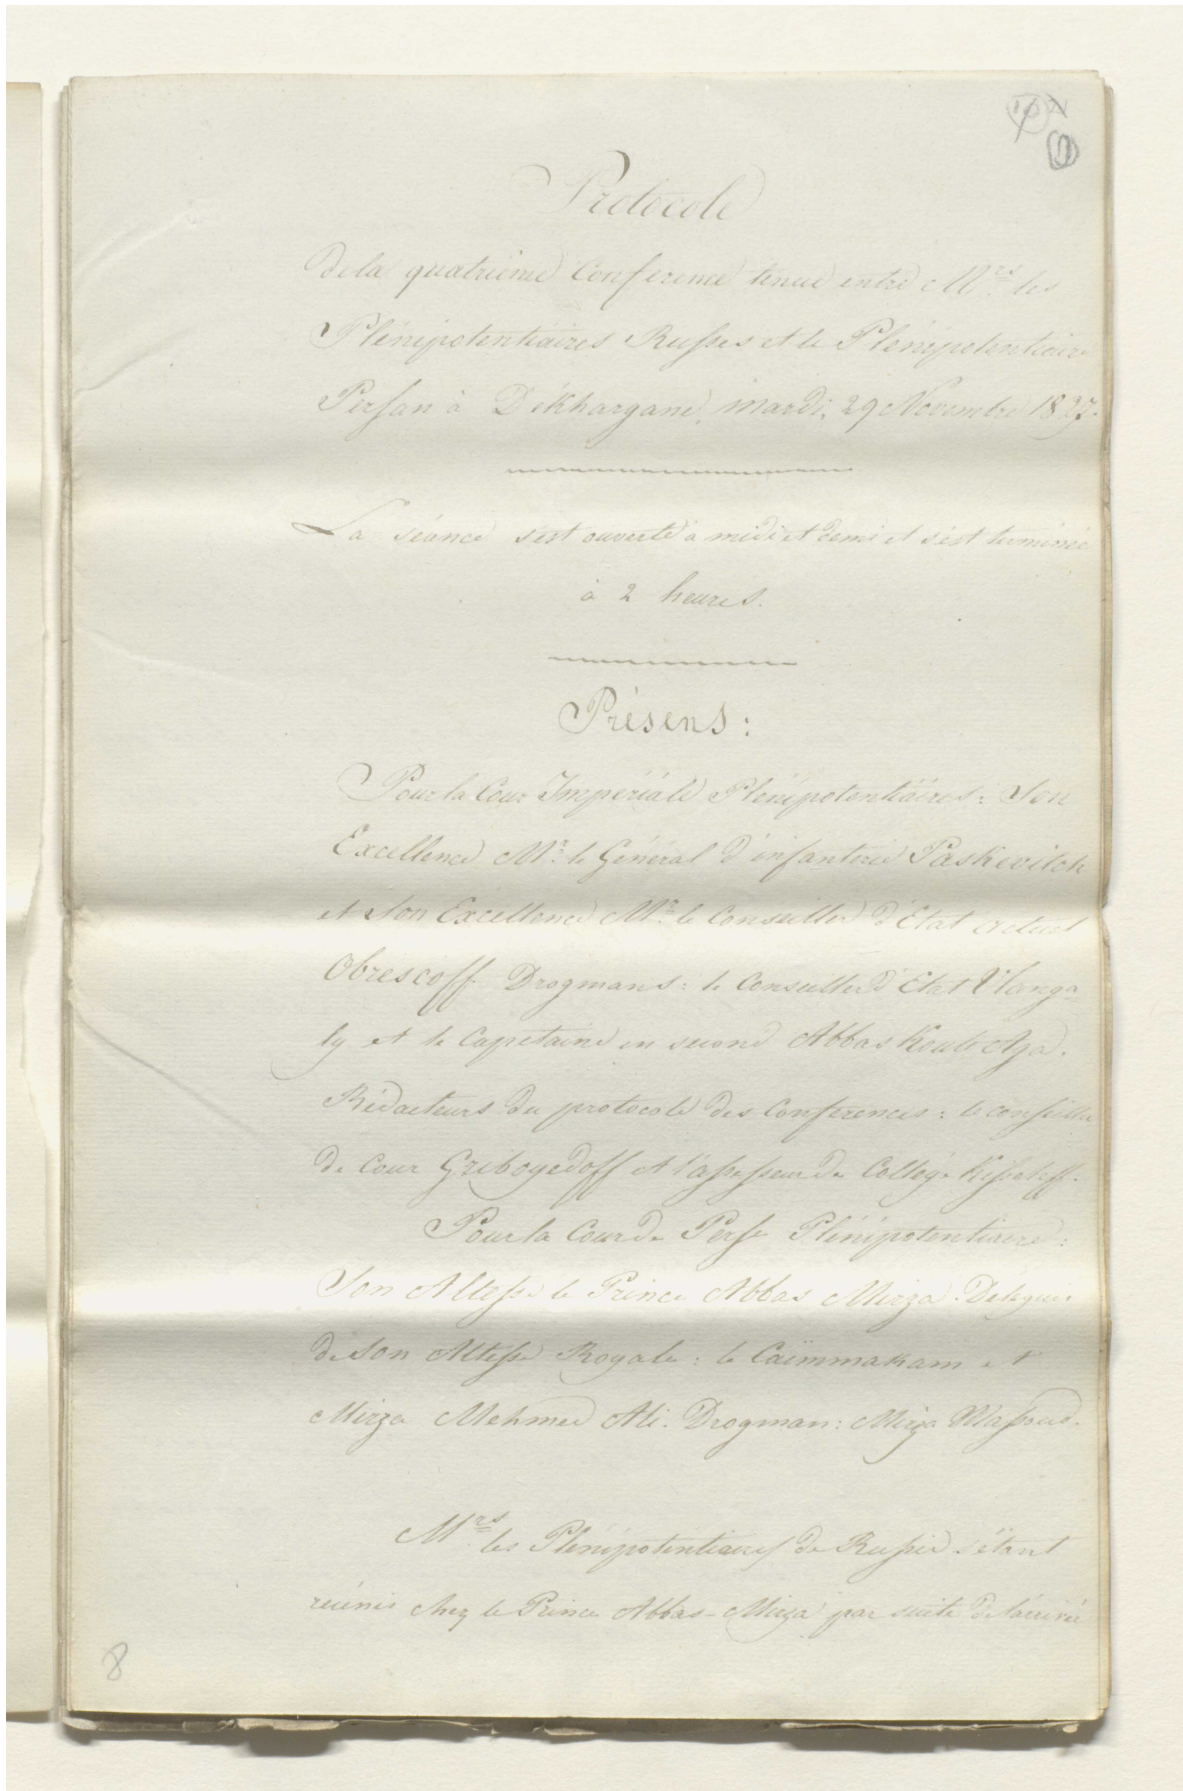 Protocole
de la quatrième Conference tenue entre M.rs les
Plénipotentiaires Russes et le Plénipotentiaire
Persan à Dékhargane, mardi, 29 Novembre 1827.
La séance s'est ouverte à midi et demi et s'est terminée
à 2 heures.
Présens:
Pour la Cour Impériale Plénipotentiaires: Son
Excellence Mr. le Général d'infanterie Paskevitch
et Son Excellence Mr. le Conseiller d'Etat actuel
Obrescoff. Drogmans: le Conseiller d'Etat Vlanga
ly et le Capitaine en second Abbas Kouli Aga.
Rédacteurs du protocole des Conferences: le conseiller
de Cour Griboyedoff et l'assesseur de Collège Kisseleff.
Pour la Cour de Perse Plénipotentiaire:
Son Altesse le Prince Abbas Mirza. Délégués
de Son Altesse Royale: le Caïmmakam et
Mirza Mehmed Ali. Drogman: Mirza Massoud.
M.rs les Plénipotentiaires de Russie s'étant
réunis chez le Prince Abbas-Mirza par suite de l'arrivée
8